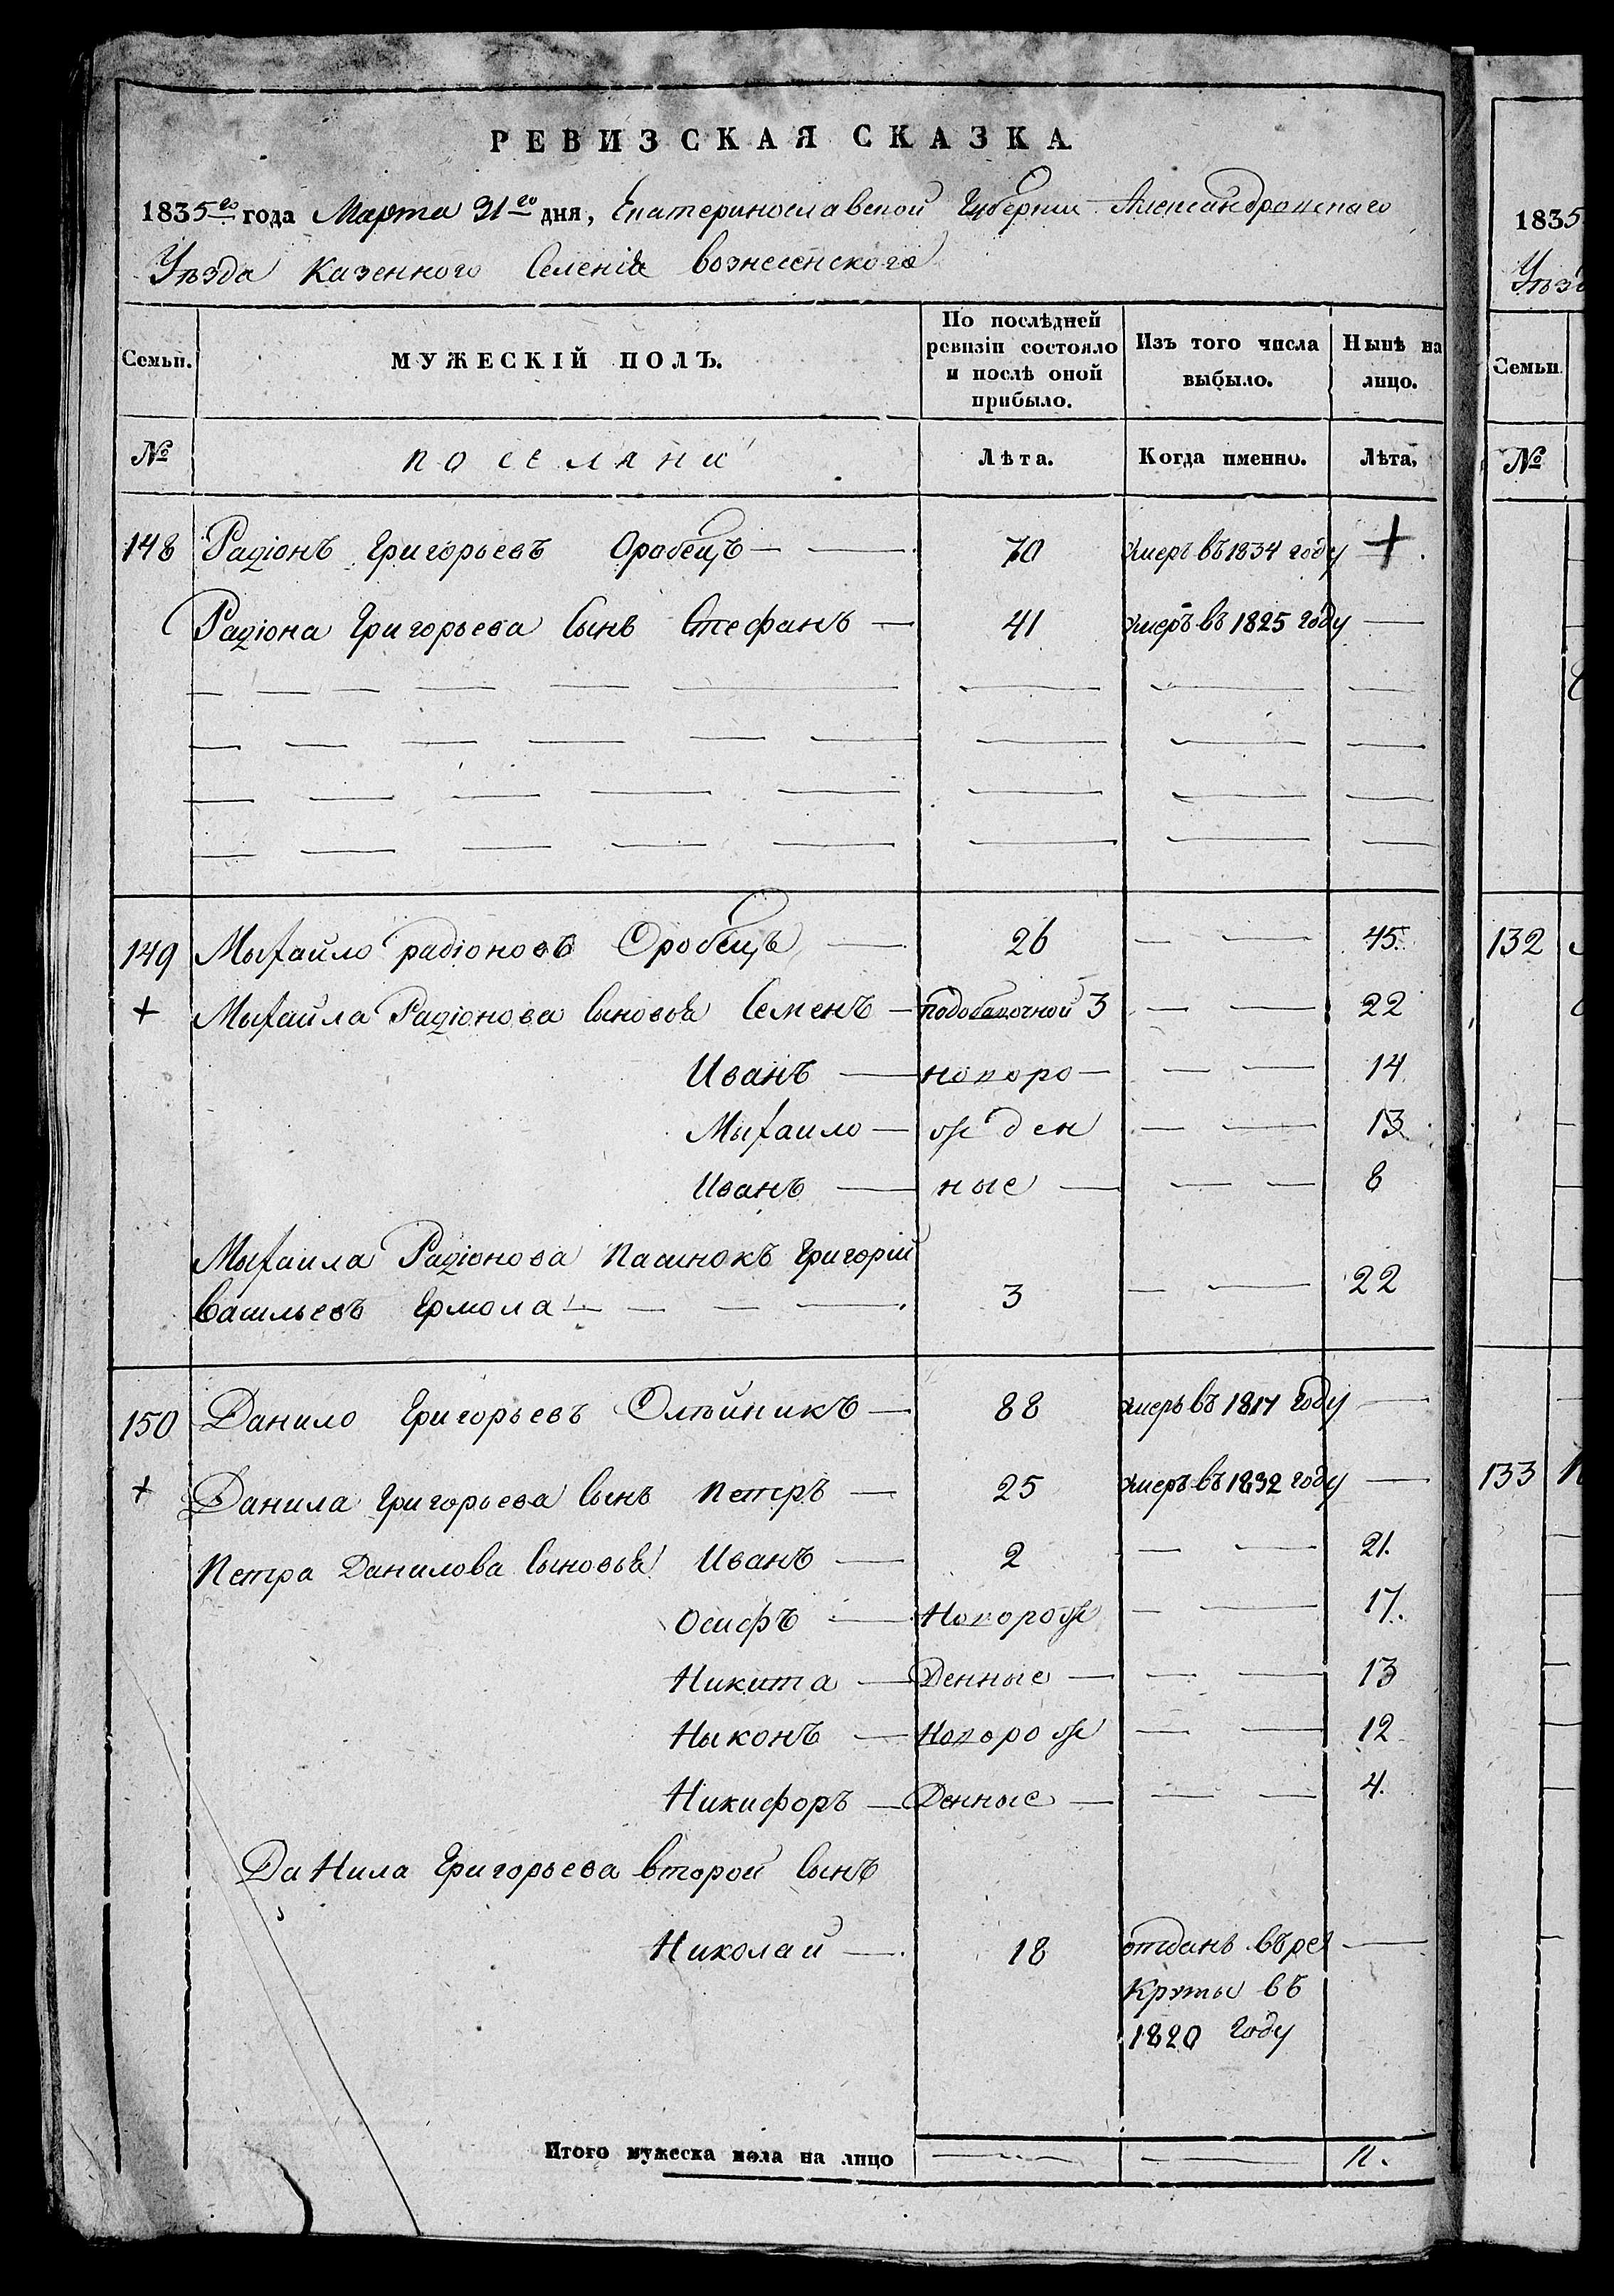 РЕВИЗСКАЯ СКАЗКА
1835го года Марта 31го дня, Екатеринославской Губернии Александровскаго
Уѣзда Казенного Селенія вознесенского
Семьи. МУЖЕСКІЙ ПОЛЪ. По послѣдней ревизіи состояло и послѣ оной прибыло. Изъ того числа выбыло. Нынѣ на лицо.
№ поселяни Лѣта. Когда именно. Лѣта.
148 Радіонъ Григорьевъ Оробецъ — — 70 умеръ въ 1834 году +
Радіона Григорьева Сынъ Стефанъ — 41 умеръ въ 1825 году —
149 Мыхайло радіоновъ Оробецъ — 26 — — 45.
+ Мыхайла Радіонова Сыновья Семенъ — 3 — — 22
Иванъ — новоро — — — 14
Мыхайло — жден — — 13
Иванъ — ные — — — 8
Мыхаила Радіонова пасинокъ Григорій
Васильевъ Ермола — — — — 3 — — 22
150 Данило Григорьевъ Олѣйникъ — 88 умеръ въ 1817 году —
+ Данила Григорьева Сынъ Петръ — 25 умеръ въ 1832 году —
Петра Данилова Сыновья Иванъ — 2 — — 21.
Осифъ — Новорож — — 17.
Никита — Денные — — — 13
Ныконъ — Новорож — — 12
Никифоръ — Денные — — — 4.
Данила Григорьева второй Сынъ
Николай — 18 отданъ въ ре —
круты въ
1820 году
Итого мужеска пола на лицо — —
1835
Уѣзд
Семьи
№
132
133